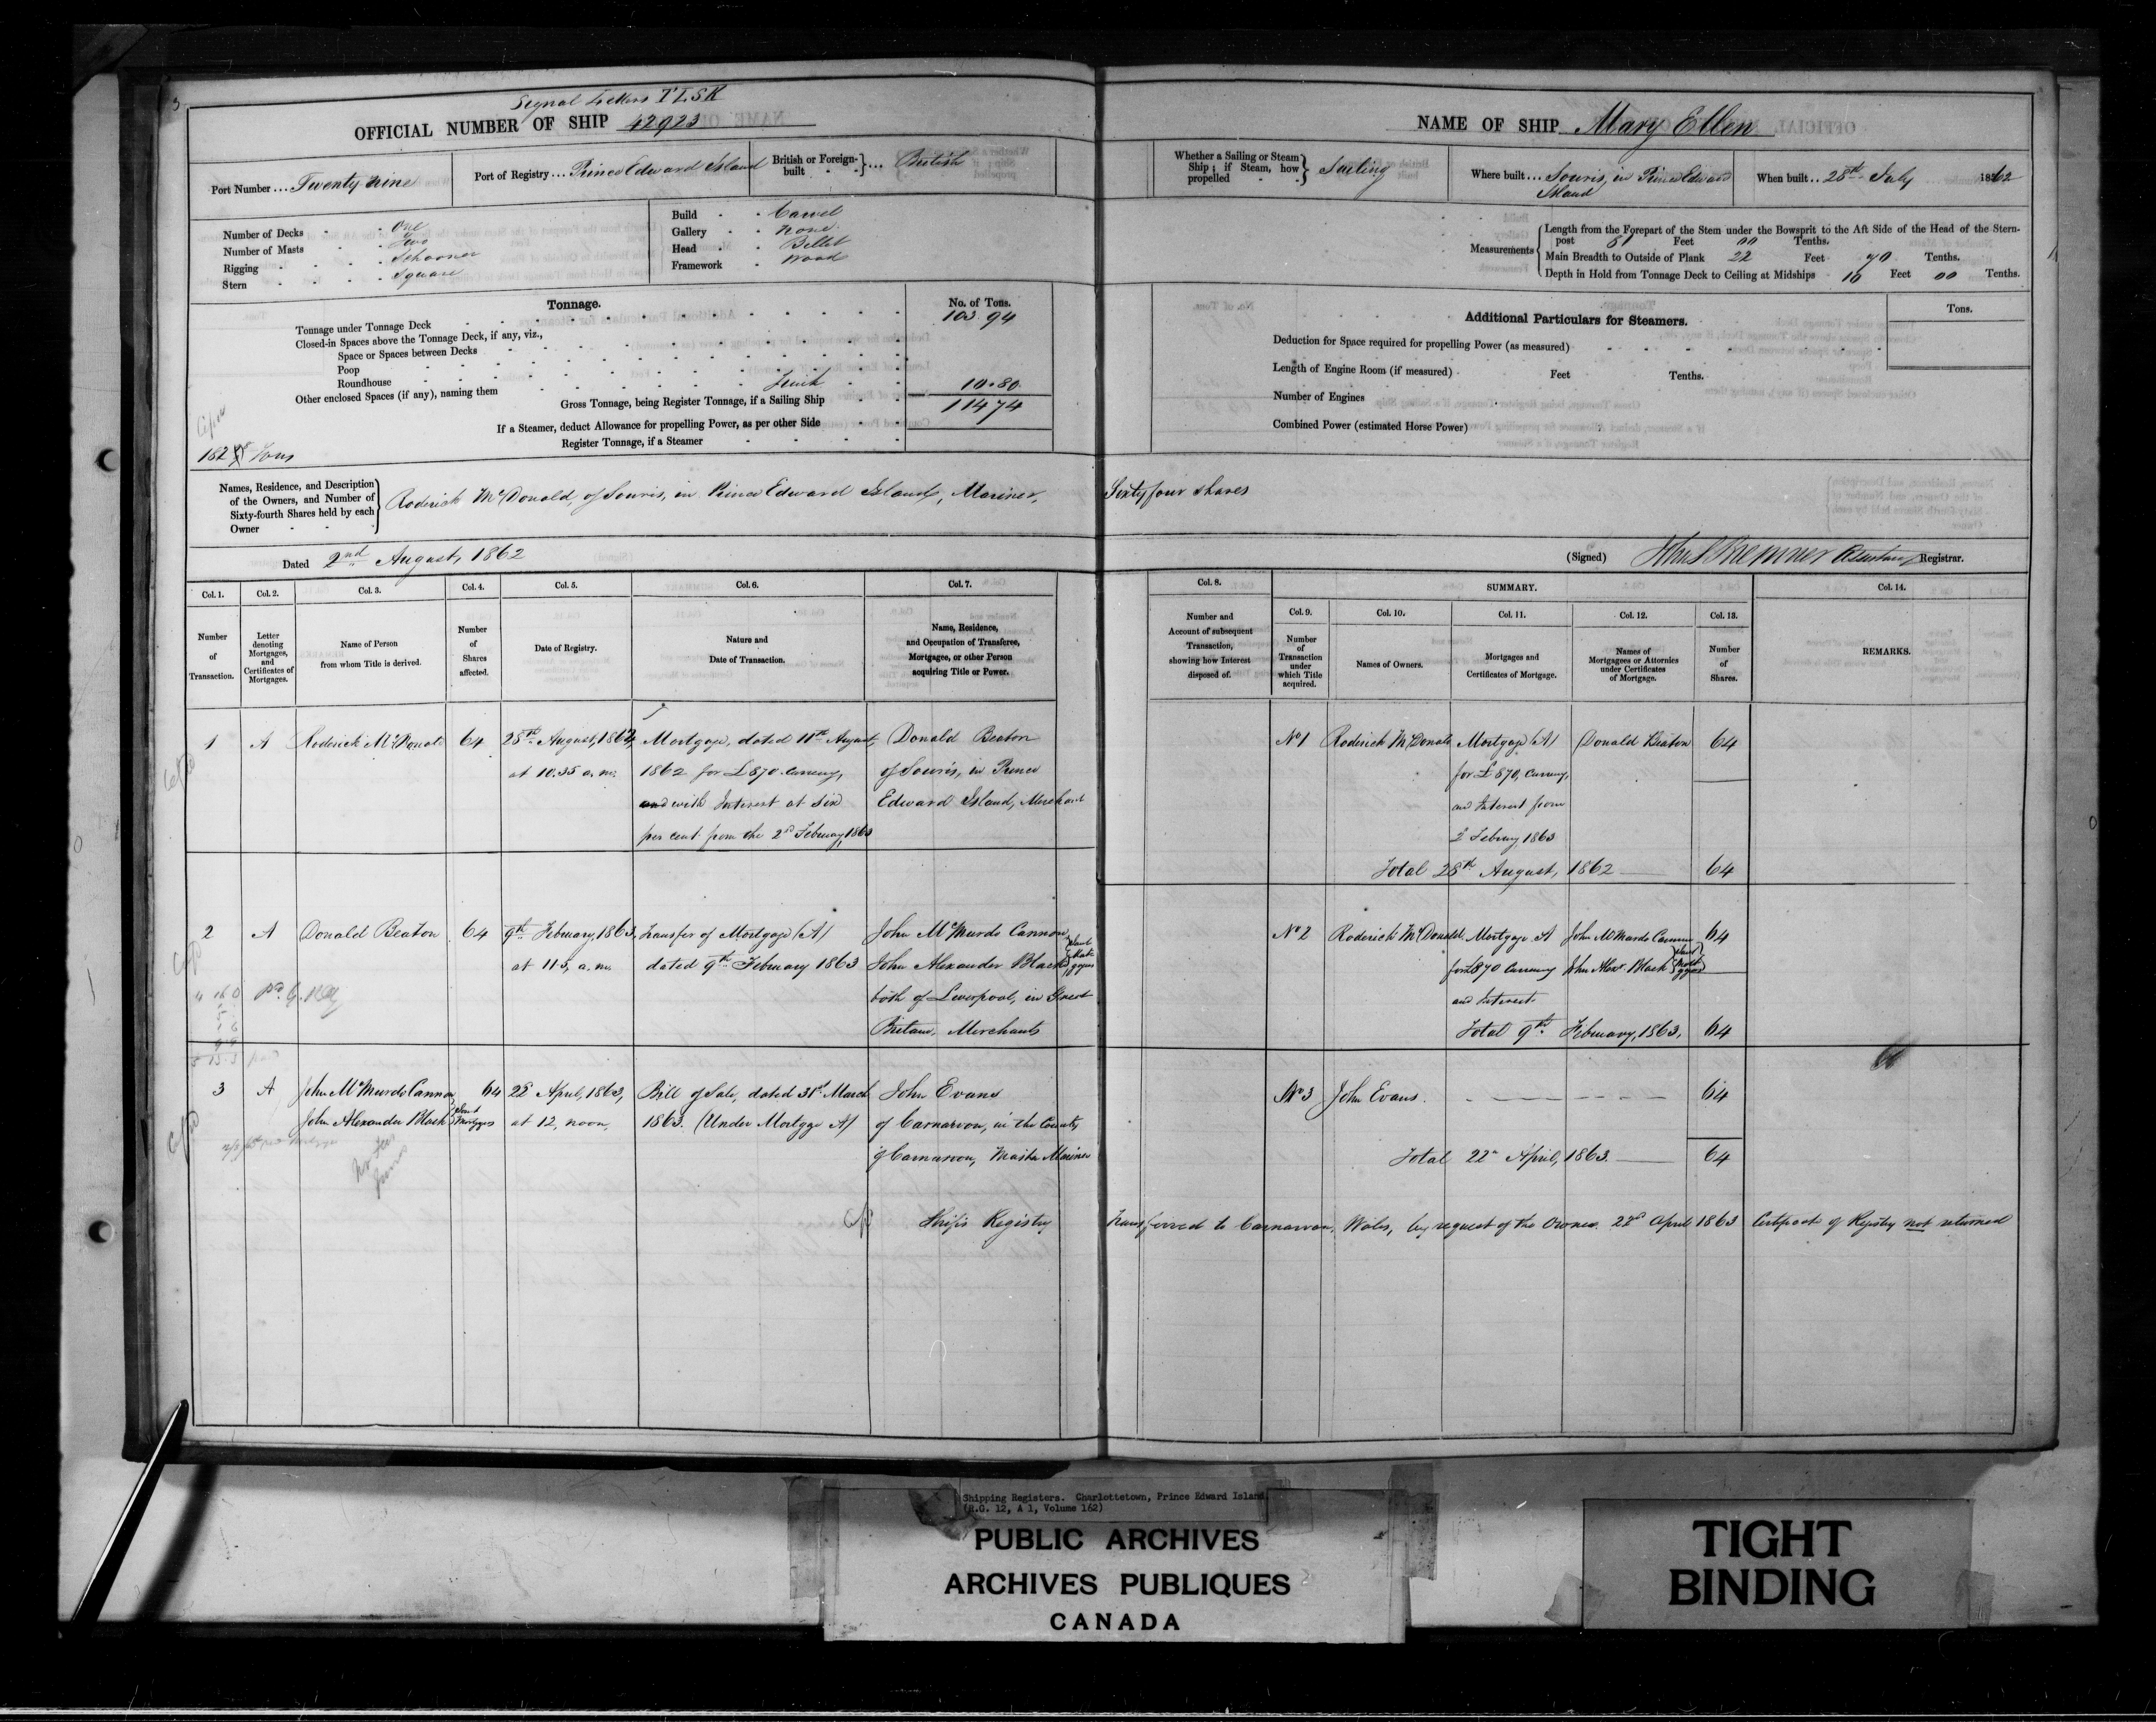 3
Signal Letters TLSK
OFFICIAL NUMBER OF SHIP 42923
Port Number ... Twenty nine
Port of Registry ... Prince Edward Island
British or Foreign-built ... British
Number of Decks - One
Number of Masts - Two
Rigging - Schooner
Stern - Square
Build - Carvel
Gallery - none
Head - Billet
Framework - Wood
Tonnage.
No. of Tons.
Tonnage under Tonnage Deck 103.94
Closed-in Spaces above the Tonnage Deck, if any, viz.,
Space or Spaces between Decks
Poop
Roundhouse
Other enclosed Spaces (if any), naming them 10.80
Gross Tonnage, being Register Tonnage, if a Sailing Ship 114 74
If a Steamer, deduct Allowance for propelling Power, as per other Side
Register Tonnage, if a Steamer
Tons
Names, Residence, and Description of the Owners, and Number of Sixty-fourth Shares held by each Owner
Roderick McDonald, of Souris, in Prince Edward Island, Mariner,
Dated 2nd August, 1862
Col. 1. Col. 2. Col. 3. Col. 4. Col. 5. Col. 6. Col. 7.
Number of Transaction.
Letter denoting Mortgages, and Certificates of Mortgages.
Name of Person from whom Title is derived.
Number of Shares affected.
Date of Registry.
Nature and Date of Transaction.
Name, Residence, and Occupation of Transferee, Mortgagee, or other Person acquiring Title or Power.
1 A Roderick McDonald 64 28th August, 1862, Mortgage, dated 11th August, Donald Beaton
at 10.35 a.m. 1862 for £870 Currency, of Souris, in Prince
and with Interest at Six Edward Island, Merchant
per cent from the 2nd February, 1863
2 A Donald Beaton 64 9th February, 1863, Transfer of Mortgage (A) John McMurdo Cannon
at 11 a.m. dated 9th February 1863 John Alexander Black Joint Mortgagees
both of Liverpool, in Great
Britain, Merchants
3 A John McMurdo Cannon 64 22d April, 1863, Bill of Sale, dated 31st March John Evans
John Alexander Black Joint Mortgagees at 12, noon, 1863. (Under Mortgage A) of Carnarvon, in the County
of Carnarvon, Master Mariner
No fees
Ship's Registry
NAME OF SHIP Mary Ellen
Whether a Sailing or Steam Ship; if Steam, how propelled - Sailing
Where built ... Souris, in Prince Edward Island
When built .. 28th July 1862
Measurements
Length from the Forepart of the Stem under the Bowsprit to the Aft Side of the Head of the Stern-
post 81 Feet 00 Tenths.
Main Breadth to Outside of Plank 22 Feet 70 Tenths.
Depth in Hold from Tonnage Deck to Ceiling at Midships 10 Feet 00 Tenths.
Additional Particulars for Steamers.
Tons.
Deduction for Space required for propelling Power (as measured)
Length of Engine Room (if measured) Feet Tenths.
Number of Engines
Combined Power (estimated Horse Power)
Sixty four shares
(Signed) Assistant Registrar.
Col. 8. SUMMARY. Col. 14.
Col. 9. Col. 10. Col. 11. Col. 12. Col. 13.
Number and Account of subsequent Transaction, showing how Interest disposed of.
Number of Transaction under which Title acquired.
Names of Owners.
Mortgages and Certificates of Mortgage.
Names of Mortgagees or Attornies under Certificates of Mortgage.
Number of Shares.
REMARKS.
No 1 Roderick McDonald Mortgage (A) Donald Beaton 64
for £870, Currency,
and Interest from
2 Februay 1863
Total 28th August, 1862 64
No 2 Roderick McDonald Mortgage A John McMurdo Cannon 64
for £870 Currency John Alexr. Black Joint Mortgagees
and Interest
Total 9th February, 1863, 64
No 3 John Evans. 64
Total 22d April, 1863. 64
Transferred to Carnarvon, Wales, by request of the Owner. 22nd April 1863 Certificate of Registry not returned
Shipping Registers. Charlottetown, Prince Edward Island
(R.G. 12, A 1, Volume 162)
PUBLIC ARCHIVES
ARCHIVES PUBLIQUES
CANADA
TIGHT
BINDING